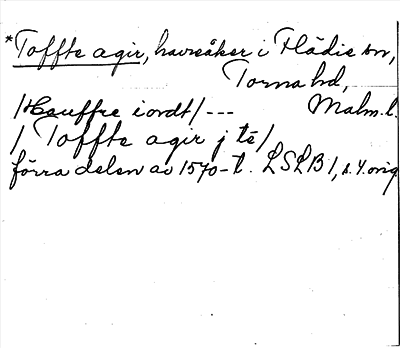 *Toffte agir, havreåker i Flädie sn,
Torna hd,
Malm. l.
/Hauffre iordt/ ---
/ Toffte agir j té/
förra delen av 1570-t. LSLB 1, s. 4. orig.